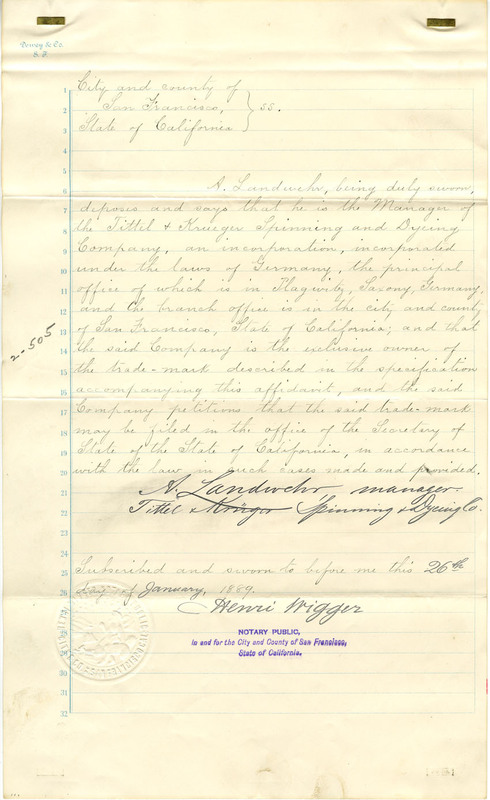 Dewey & Co.
S. F.
City and county of
San Francisco, } ss.
State of California
A. Landwehr, being duly sworn,
deposes and says that he is the Manager of
the Tittel & Krueger Spinning and Dyeing
Company, an incorporation, incorporated
under the laws of Germany, the principal
office of which is in Plagwitz, Saxony, Germany,
and the branch office is in the city and county
of San Francisco, State of California; and that
the said Company is the exclusive owner of
the trade-mark described in the specification
accompanying this affidavit, and the said
Company petitions that the said trade-mark
may be filed in the office of the Secretary of
State of the State of California, in accordance
with the law in such cases made and provided.
A. Landwehr manager.
Tittel & Krüger Spinning & Dyeing Co.
Subscribed and sworn to before me this 26th
day of January, 1889.
Henri Wigger
NOTARY PUBLIC,
In and for the City and County of San Francisco,
State of California.
2-505
1
2
3
6
7
8
9
10
11
12
13
14
15
16
17
18
19
20
21
22
23
24
25
26
27
28
29
30
31
32